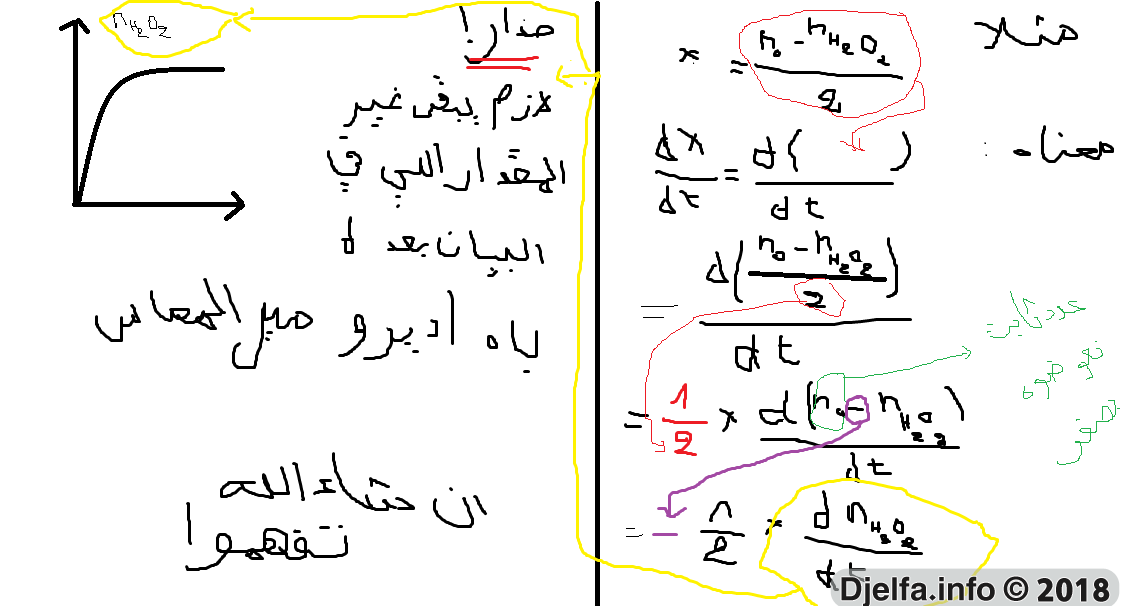 مثلا
x = (n₀ - nH₂O₂) / 2
معناه :
dx/dt = d( ) / dt
= d((n₀ - nH₂O₂) / 2) / dt
= 1/2 × d(n₀ - nH₂O₂) / dt
عدد ثابت
= - 1/2 × d nH₂O₂ / dt
nH₂O₂
حذار!
لازم يبقى غير
المقدار اللي في
البيان بعد d
باه اديرو ميل المماس
ان شاء الله
تفهموا
Djelfa.info © 2018